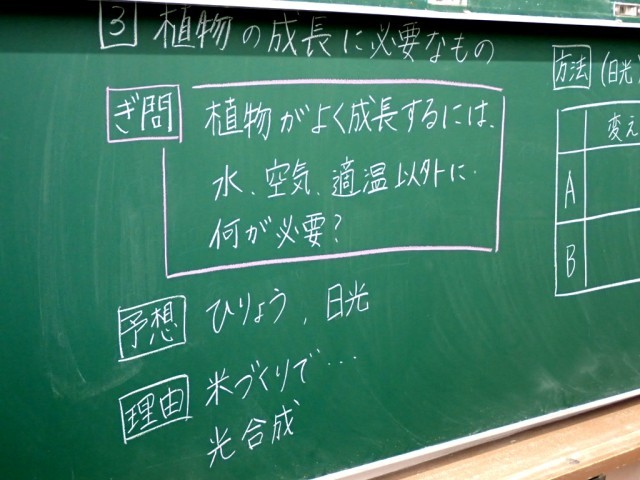 3 植物の成長に必要なもの
ぎ問 植物がよく成長するには、
水、空気、適温以外に
何が必要?
予想 ひりょう、日光
理由 米づくりで…
光合成
方法 (日光
変え
A
B